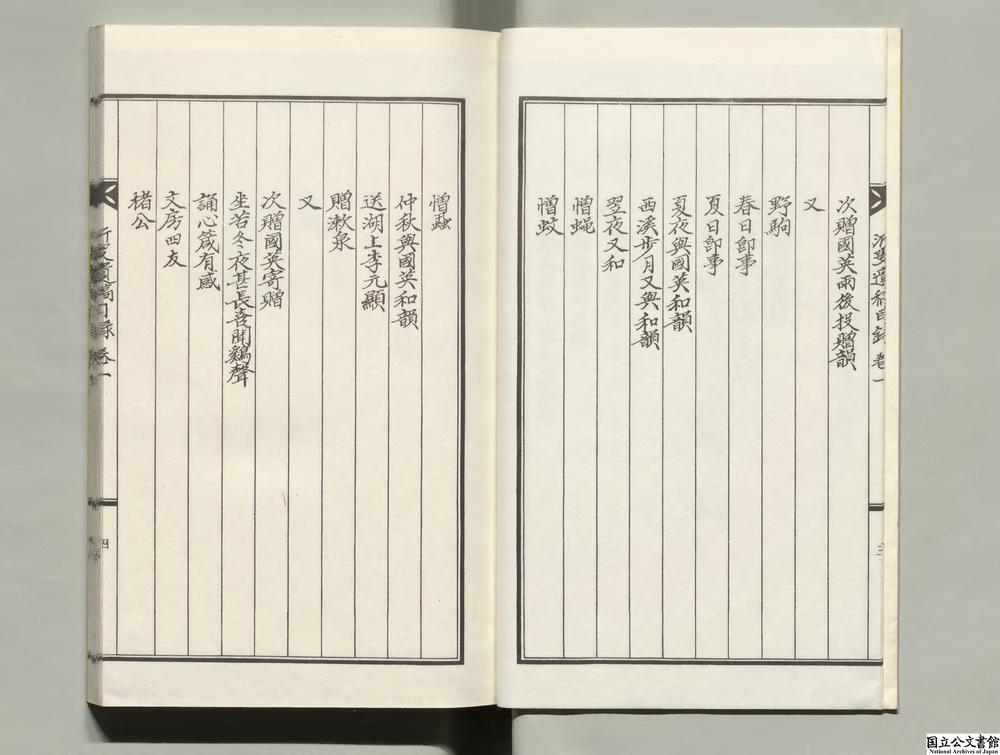 次贈國英雨後投贈韻
又
野駒
春日即事
夏日即事
夏夜與國英和韻
西溪步月又與和韻
翌夜又和
憎蝇
憎蚊
遺稿目錄 卷一
三
憎蝨
仲秋與國英和韻
送湖上李元顯
贈漱泉
又
次贈國英寄贈
坐若冬夜甚長喜聞鷄聲
誦心箴有感
文房四友
楮公
遺稿目錄 卷一
四
国立公文書館
National Archives of Japan